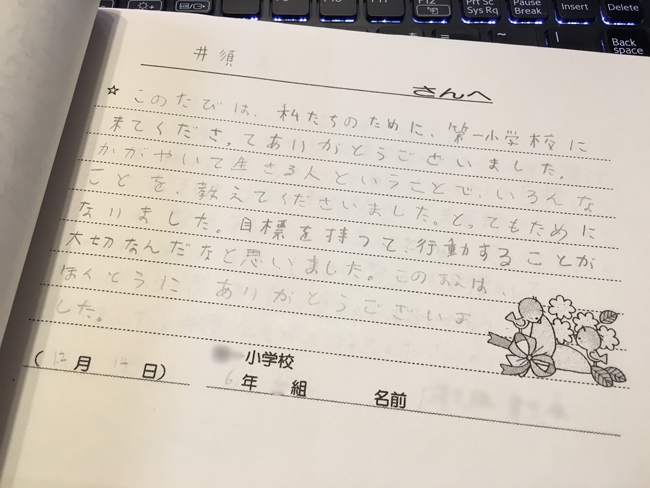 Prt Sc
Sys Rq
Pause
Break
Insert
Delete
Back
space
井須
さんへ
☆ このたびは、私たちのために、第一小学校に
来てくださってありがとうございました。
かがやいて生きる人ということで、いろんな
ことを、教えてくださいました。とってもために
なりました。目標を持って、行動することが
大切なんだなと思いました。この は
ほんとうに ありがとうございま
した。
(12月 14日)
小学校
6年 組 名前